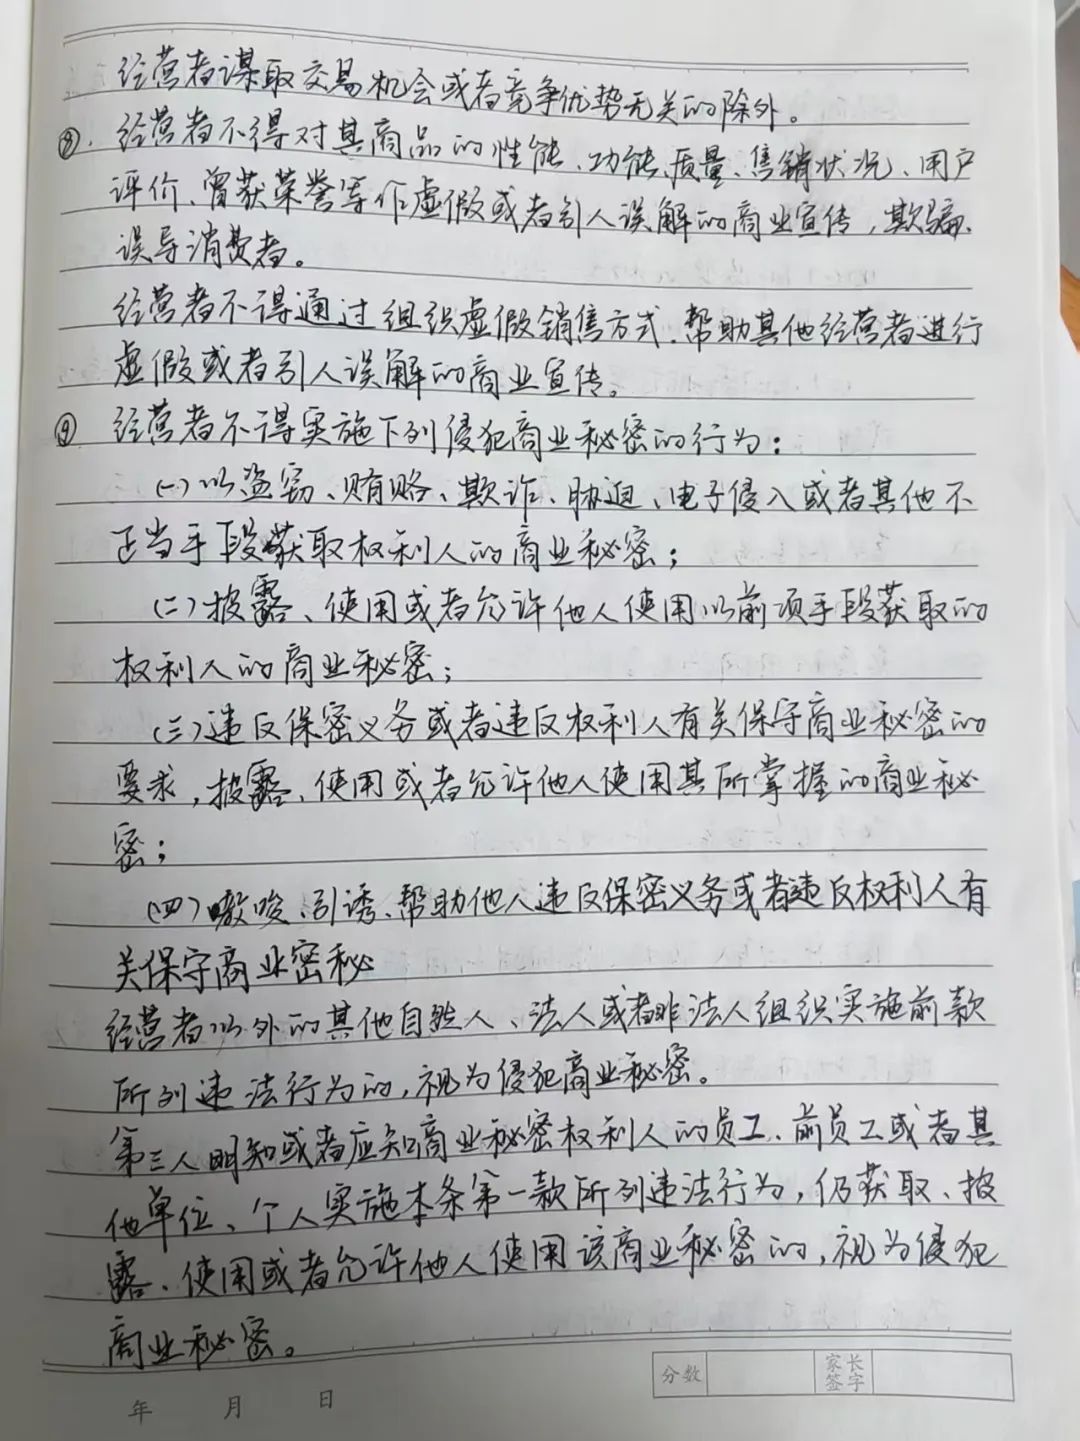 经营者谋取交易机会或者竞争优势无关的除外。
⑧. 经营者不得对其商品的性能、功能、质量、售销状况、用户
评价、曾获荣誉等作虚假或者引人误解的商业宣传，欺骗、
误导消费者。
经营者不得通过组织虚假销售方式、帮助其他经营者进行
虚假或者引人误解的商业宣传。
⑨ 经营者不得实施下列侵犯商业秘密的行为：
(一)以盗窃、贿赂、欺诈、胁迫、电子侵入或者其他不
正当手段获取权利人的商业秘密；
(二)披露、使用或者允许他人使用以前项手段获取的
权利人的商业秘密；
(三)违反保密义务或者违反权利人有关保守商业秘密的
要求，披露、使用或者允许他人使用其所掌握的商业秘
密；
(四)嗷唆、引诱、帮助他人违反保密义务或者违反权利人有
关保守商业密秘
经营者以外的其他自然人、法人或者非法人组织实施前款
所列违法行为的，视为侵犯商业秘密。
第三人明知或者应知商业秘密权利人的员工、前员工或者其
他单位、个人实施本条第一款所列违法行为，仍获取、披
露、使用或者允许他人使用该商业秘密的，视为侵犯
商业秘密。
分数 家长签字
年 月 日